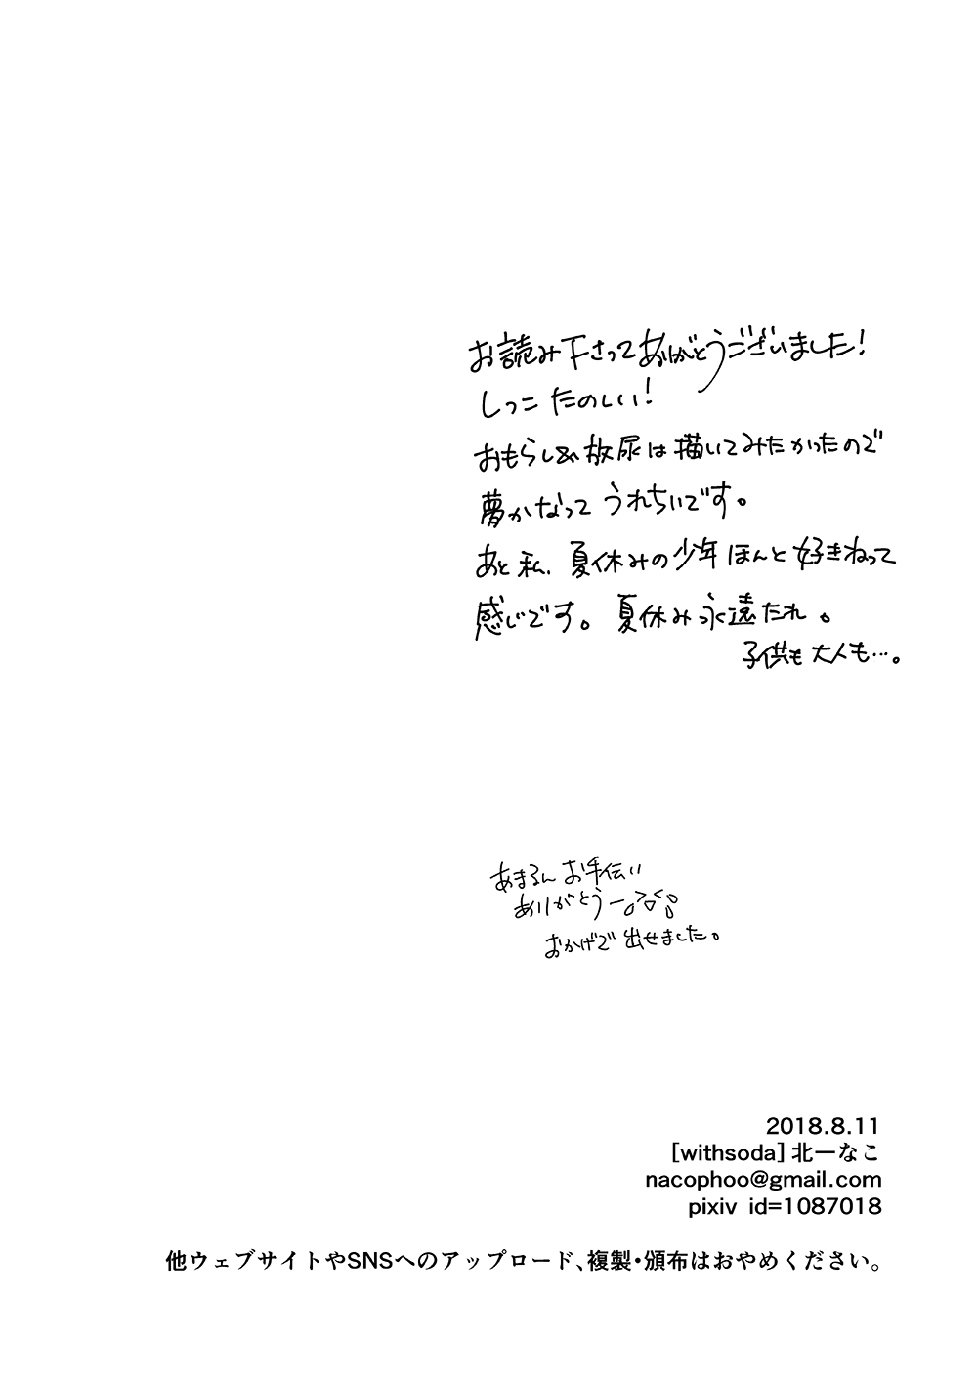 お読み下さってありがとうございました!
しっこ たのしい!
おもらし&放尿は描いてみたかったので
夢かなって うれちいです。
あと 私、夏休みの少年 ほんと 好きねって
感じです。夏休み永遠たれ。
子供も 大人も…。
あまるん お手伝い
ありがとうー
おかげで 出せました。
2018.8.11
[withsoda]北一なこ
nacophoo@gmail.com
pixiv id=1087018
他ウェブサイトやSNSへのアップロード、複製・頒布はおやめください。